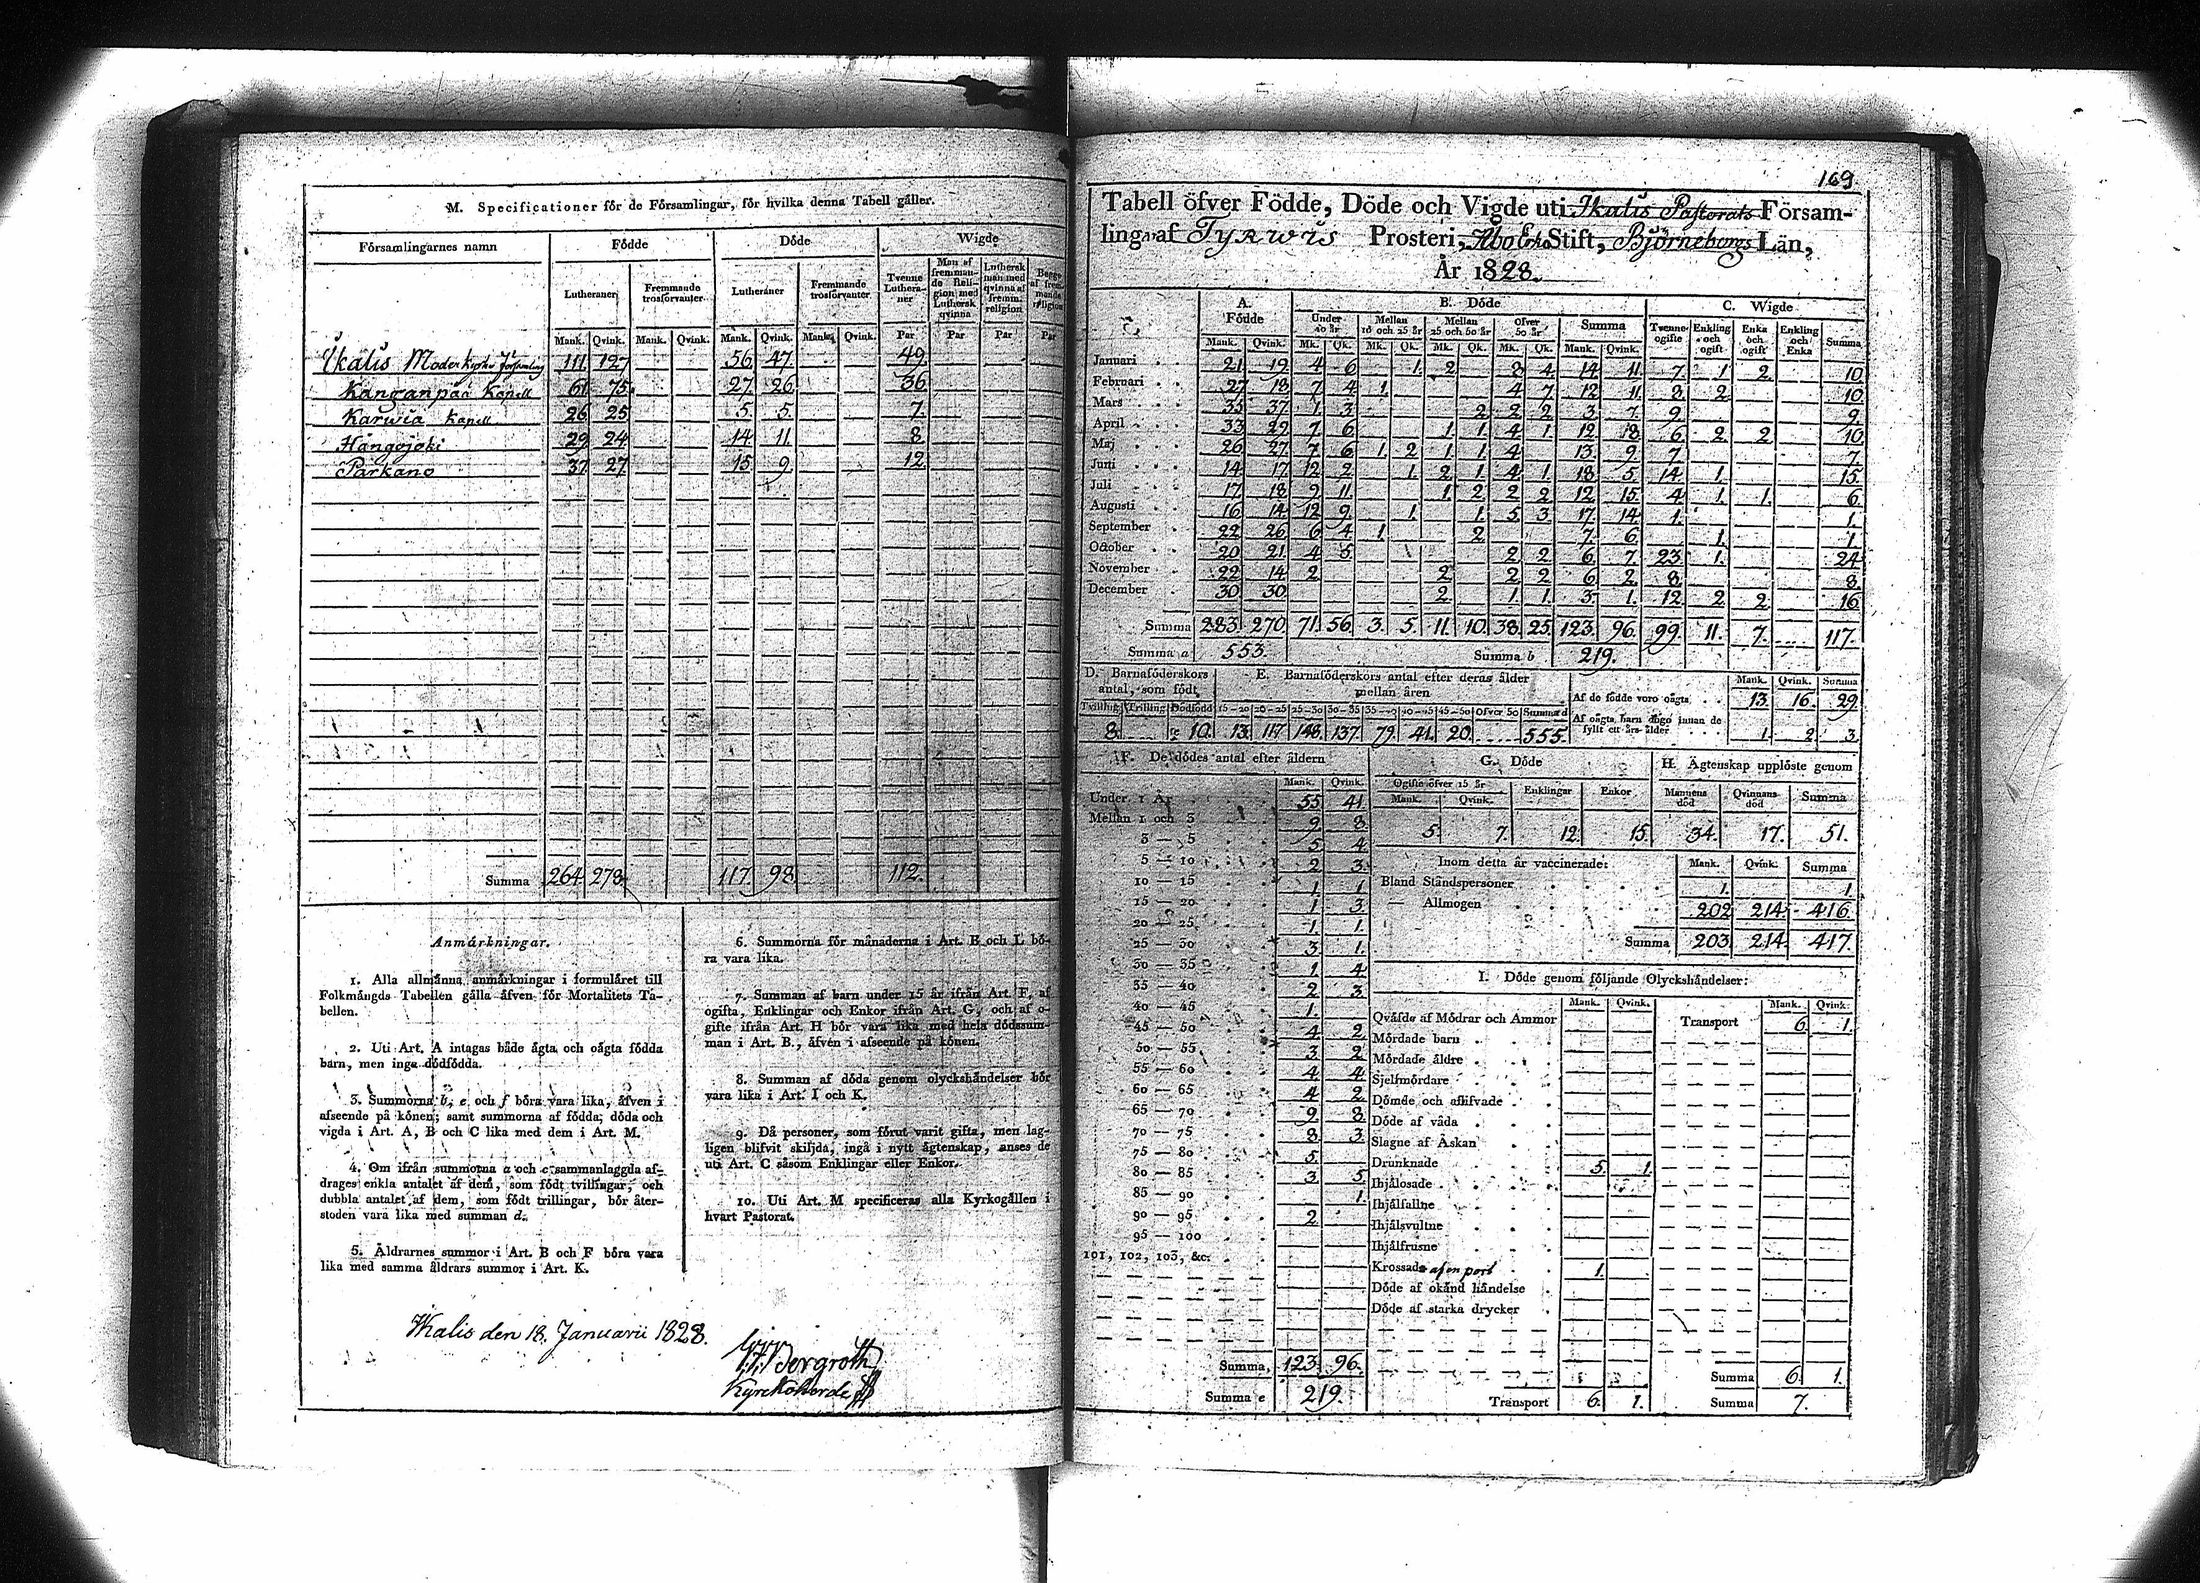 M. Specificationer för de Församlingar, för hvilka denna Tabell gäller.
Församlingarnes namn Födde Döde Wigde
Lutheraner Fremmande trosförvanter Lutheraner Fremmande trosförvanter Tvenne Lutheraner Man af fremmande Religion med Luthersk qvinna Luthersk man med qvinna af fremm. religion Begge af fremmande religion
Mank. Qvink. Mank. Qvink. Mank. Qvink. Mank. Qvink. Par Par Par Par
Ikalis Moder Kyrko Församling 111 127 56 47 49
Kanganpää Kapell 61 75 27 26 36
Karwia Kapell 26 25 5 5 7
Hångojoki 29 24 14 11 8
Parkano 37 27 15 9 12
Summa 264 278 117 98 112
Anmärkningar.
1. Alla allmänna anmärkningar i formuläret till
Folkmängds Tabellen gälla äfven för Mortalitets Ta-
bellen.
2. Uti Art. A intagas både ägta och oägta födda
barn, men inga dödfödda.
3. Summorna b, e och f böra vara lika, äfven i
afseende på könen; samt summorna af födda, döda och
vigda i Art. A, B och C lika med dem i Art. M.
4. Om ifrån summorna a och c sammanlaggda af-
drages enkla antalet af dem, som födt tvillingar, och
dubbla antalet af dem, som födt trillingar, bör åter-
stoden vara lika med summan d.
5. Åldrarnes summor i Art. B och F böra vara
lika med samma åldrars summor i Art. K.
6. Summorna för månaderna i Art. B och L bö-
ra vara lika.
7. Summan af barn under 15 år ifrån Art. F, af
ogifta, Enklingar och Enkor ifrån Art. G, och af o-
gifte ifrån Art. H bör vara lika med hela dödssum-
man i Art. B, äfven i afseende på könen.
8. Summan af döda genom olyckshändelser bör
vara lika i Art. I och K.
9. Då personer, som förut varit gifta, men lag-
ligen blifvit skiljda, ingå i nytt ägtenskap, anses de
uti Art. C såsom Enklingar eller Enkor.
10. Uti Art. M specificeras alla Kyrkogällen i
hvart Pastorat.
Ikalis den 18. Januarii 1828.
Bergroth
Kyrckoherde
169
Tabell öfver Födde, Döde och Vigde uti Ikalis Pastorats Försam-
ling af Tyrwis Prosteri, Åbo Erke Stift, Björneborgs Län,
År 1828.
A. Födde B. Döde C. Wigde
Under 10 år Mellan 10 och 25 år Mellan 25 och 50 år Öfver 50 år Summa Tvenne ogifte Enkling och ogift Enka och ogift Enkling och Enka Summa
Mank. Qvink. Mk. Qk. Mk. Qk. Mk. Qk. Mk. Qk. Mank. Qvink.
Januari 21 19 4 6 1 2 8 4 14 11 7 1 2 10
Februari 27 18 7 4 1 4 7 12 11 8 2 10
Mars 35 37 1 3 2 2 2 3 7 9 9
April 33 29 7 6 1 1 4 1 12 18 6 2 2 10
Maj 26 27 7 6 1 2 1 1 4 13 9 7 7
Juni 14 17 12 2 1 2 1 4 1 18 5 14 1 15
Juli 17 18 9 11 1 2 2 2 12 15 4 1 1 6
Augusti 16 14 12 9 1 1 5 3 17 14 1 1
September 22 26 6 4 1 2 7 6 1 1
October 20 21 4 5 2 2 6 7 23 1 24
November 22 14 2 2 2 2 6 2 8 8
December 30 30 2 1 1 3 1 12 2 2 16
Summa 283 270 71 56 3 5 11 10 38 25 123 96 99 11 7 117
Summa a 553 Summa b 219
D. Barnaföderskors antal, som födt E. Barnaföderskors antal efter deras ålder mellan åren Mank. Qvink. Summa
Tvilling Trilling Dödfödd 15-20 20-25 25-30 30-35 35-40 40-45 45-50 Öfver 50 Summa d
8 10 13 117 148 137 79 41 20 555
Af de födde voro oägta 13 16 29
Af oägta barn dogo innan de fyllt ett års ålder 1 2 3
F. De dödes antal efter åldern
Mank. Qvink.
Under 1 År 55 41
Mellan 1 och 3 9 8
3 — 5 5 4
5 — 10 2 3
10 — 15 1 1
15 — 20 1 3
20 — 25 1 1
25 — 30 3 1
30 — 35 1 4
35 — 40 2 3
40 — 45 1
45 — 50 4 2
50 — 55 3 2
55 — 60 4 4
60 — 65 4 2
65 — 70 9 8
70 — 75 8 3
75 — 80 5
80 — 85 3 5
85 — 90 1
90 — 95 2
95 — 100
101, 102, 103, &c.
Summa 123 96
Summa e 219
G. Döde H. Ägtenskap upplöste genom
Ogifte öfver 15 år Enklingar Enkor Mannens död Qvinnans död Summa
Mank. Qvink.
5 7 12 15 34 17 51
Inom detta år vaccinerade: Mank. Qvink. Summa
Bland Ståndspersoner 1 1
— Allmogen 202 214 416
Summa 203 214 417
I. Döde genom följande Olyckshändelser:
Mank. Qvink. Mank. Qvink.
Qväfde af Mödrar och Ammor Transport 6 1
Mördade barn
Mördade äldre
Sjelfmördare
Dömde och aflifvade
Döde af våda
Slagne af Åskan
Drunknade 5 1
Ihjälosade
Ihjälfallne
Ihjälsvultne
Ihjälfrusne
Krossade af en port 1
Döde af okänd händelse
Döde af starka drycker
Summa 6 1
Transport 6 1 Summa 7